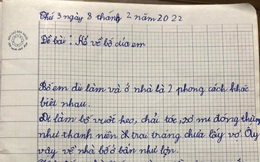 Thứ 3 ngày 8 tháng 2 năm 2022
Đề bài: Kể về bố của em
Bố em đi làm và ở nhà là 2 phong cách khác
biệt nhau.
Đi làm bố vuốt keo, chải tóc, sơ mi đóng thùng
như thanh niên trai tráng chưa lấy vợ. Ấy
vậy về nhà bố ở bẩn như lợn.